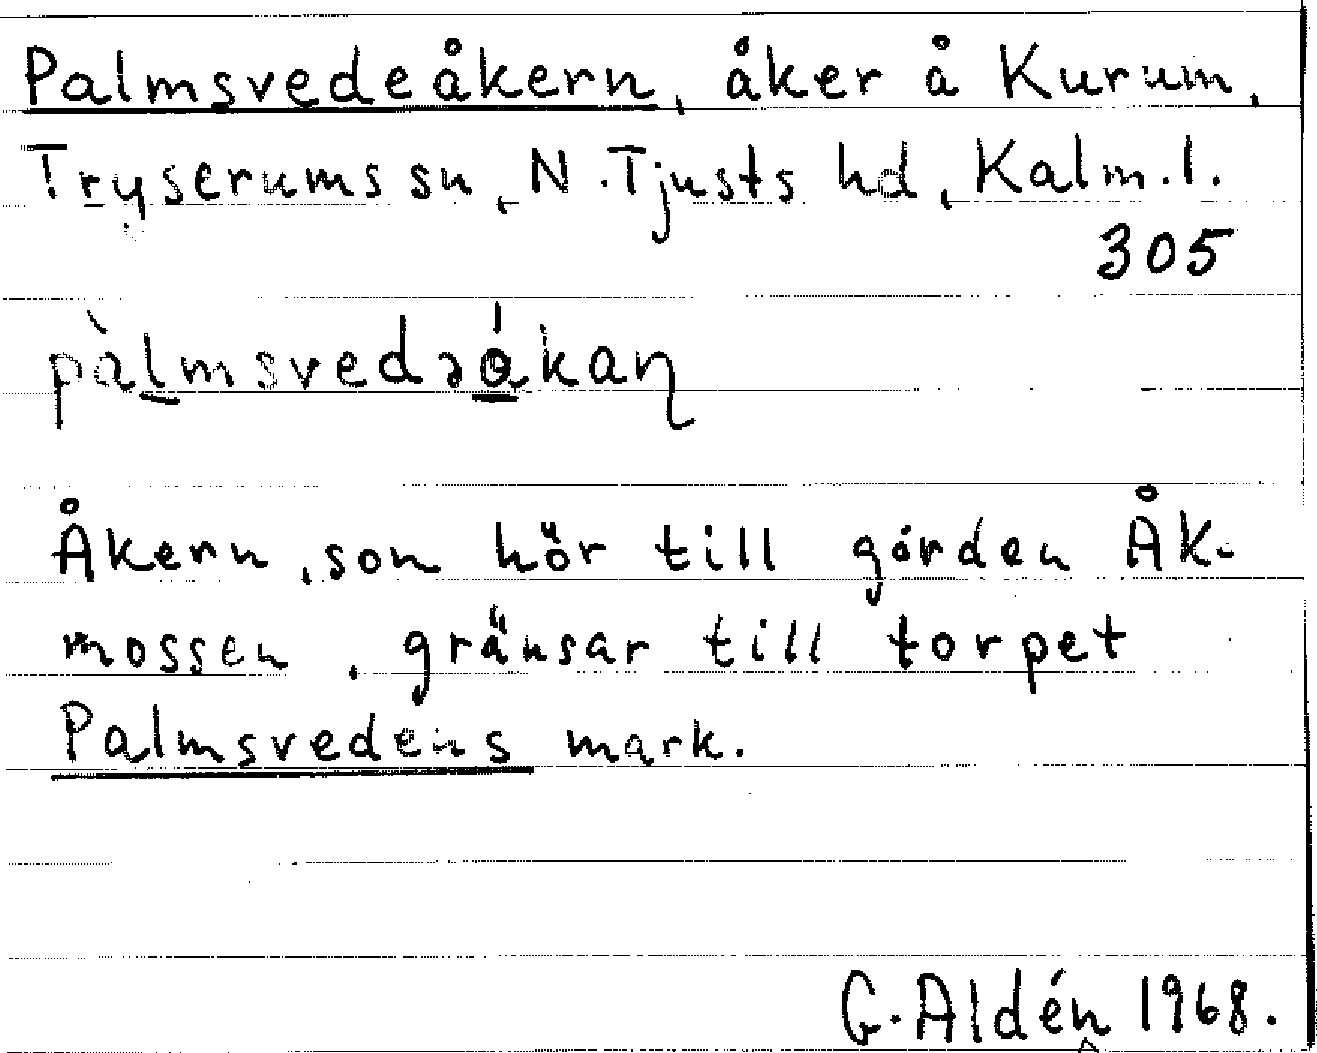 Palmsvedeåkern, åker å Kurum,
Tryserums sn, N. Tjusts hd, Kalm. l.
305
pàlmsvedəǻkaɳ
Åkern, som hör till gården Åk-
mossen, gränsar till torpet
Palmsvedens mark.
G. Aldén 1968.